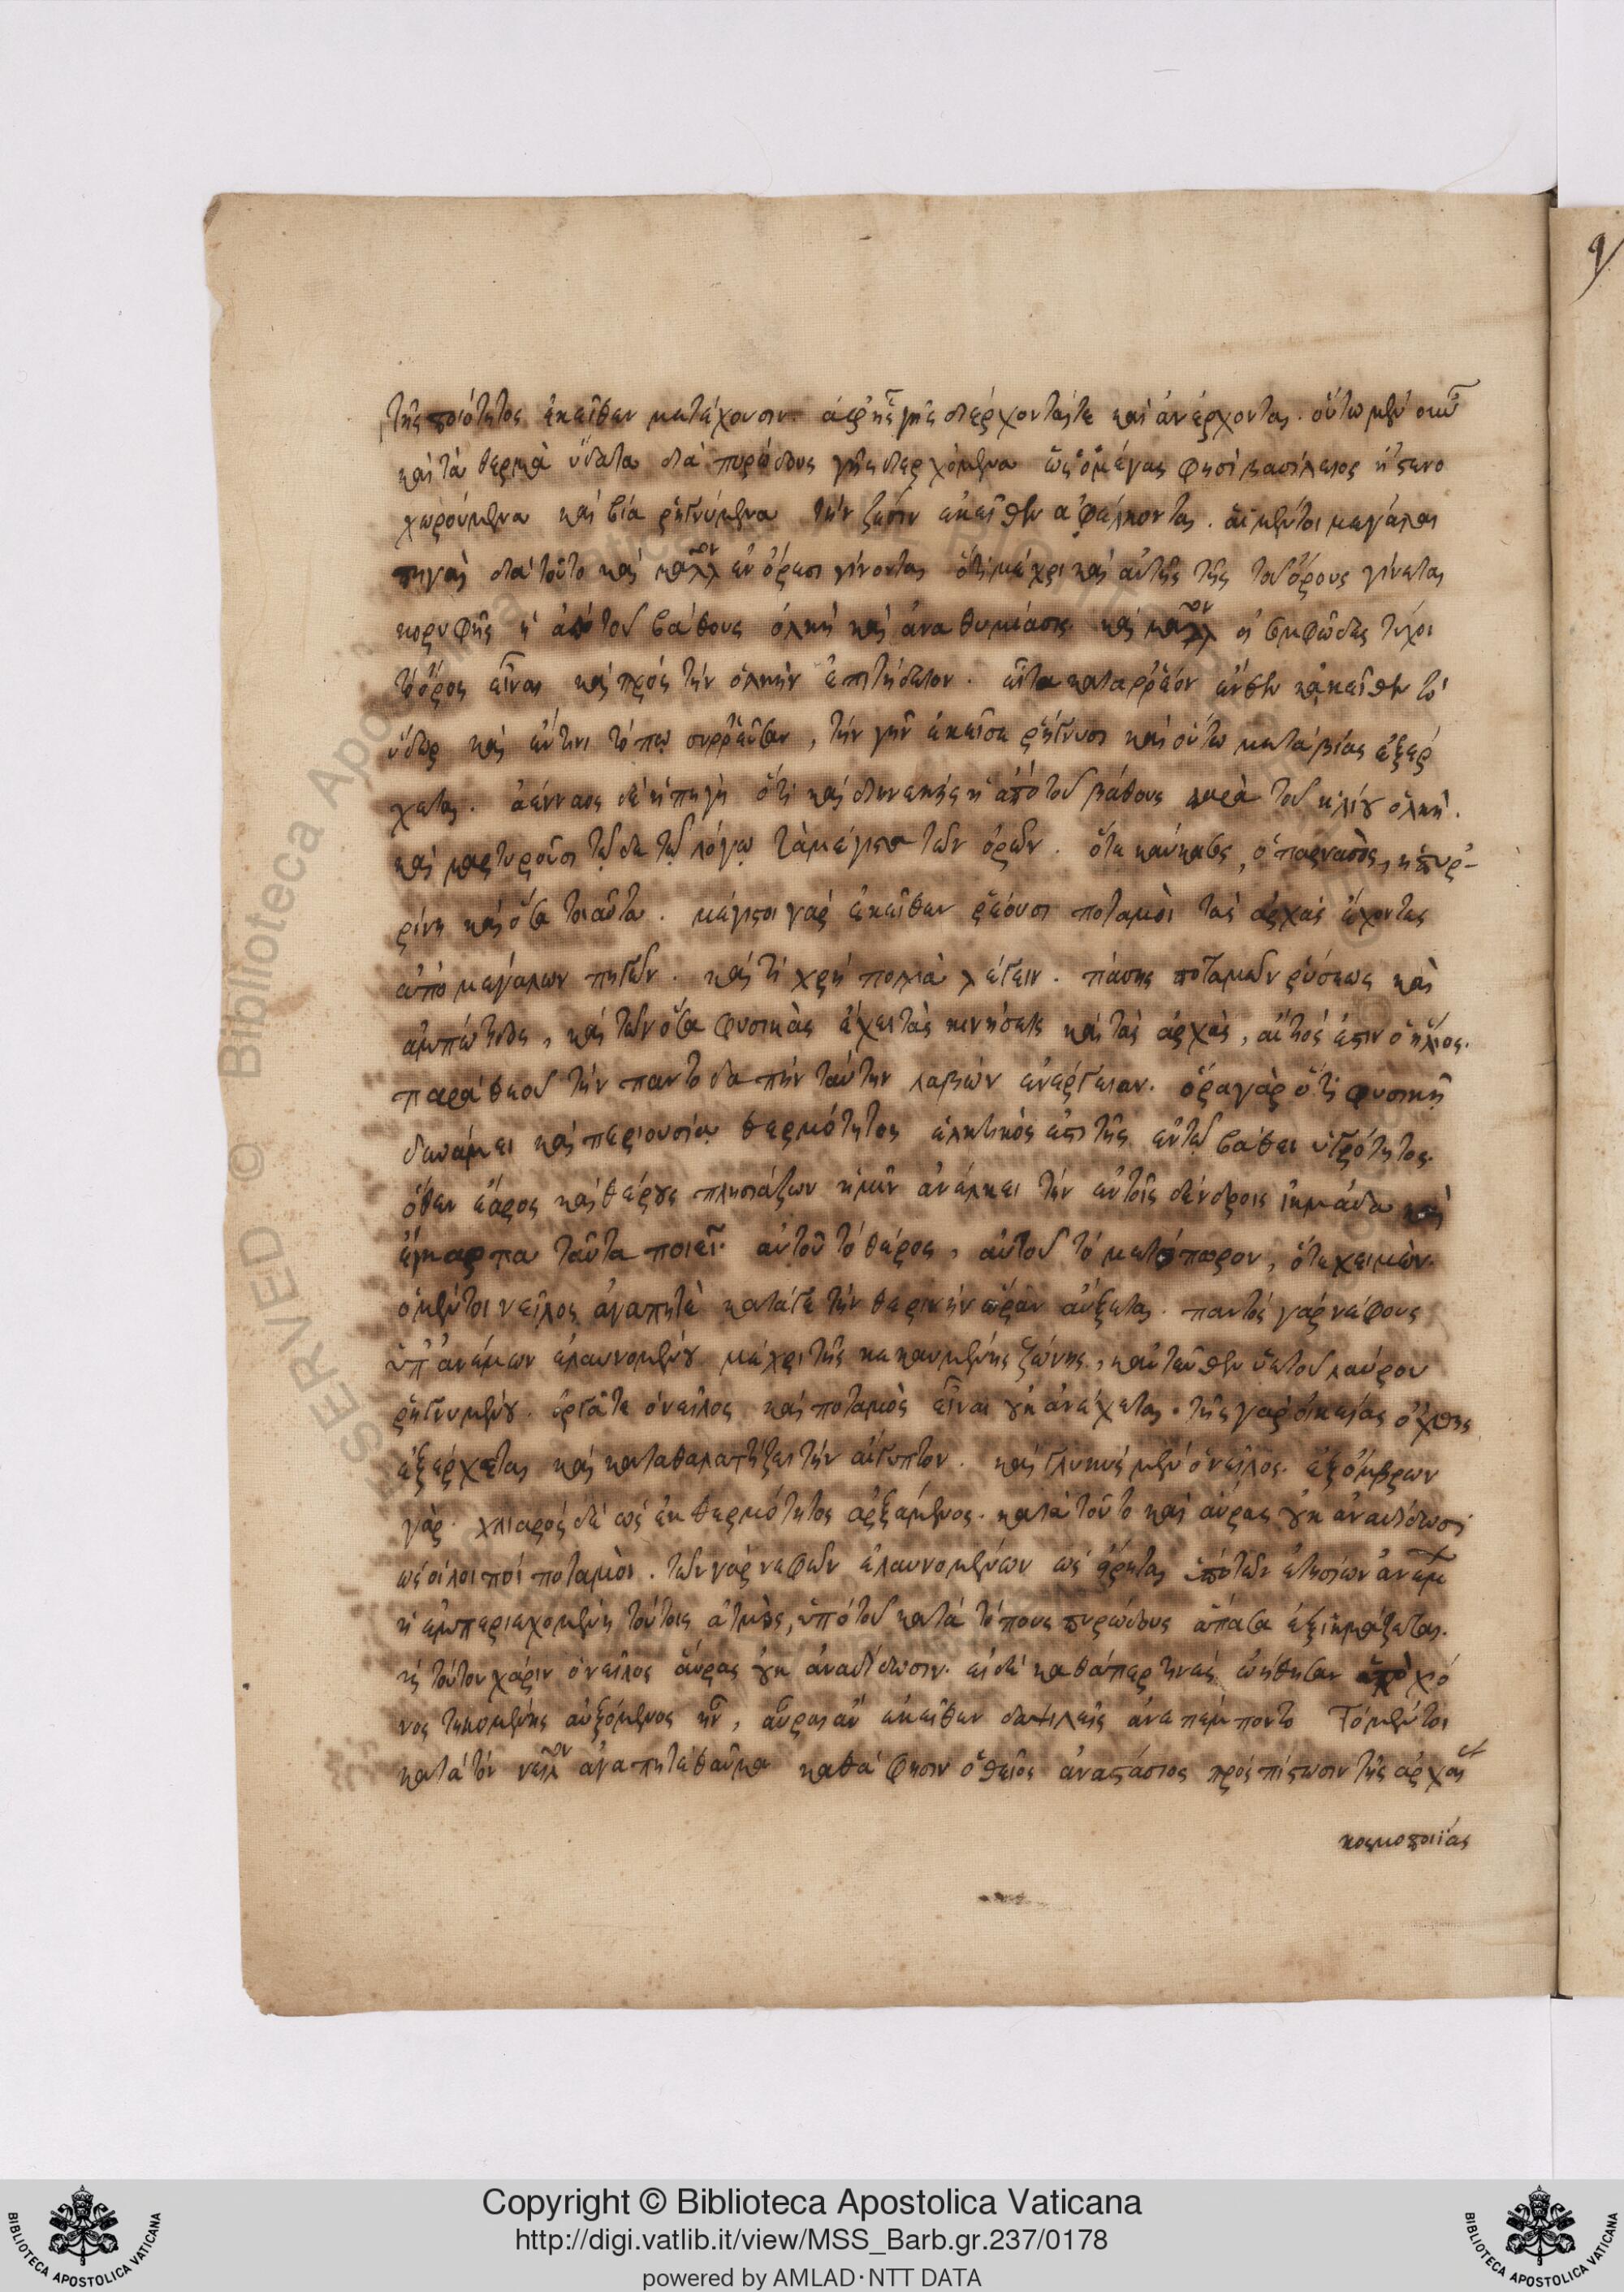 τῆς ποιότητος ἐκεῖθεν κατέχουσιν. ἀφ' ἧς γῆς διέρχονταί τε καὶ ἀνέρχονται. οὕτω μὲν οὖν
καὶ τὰ θερμὰ ὕδατα διὰ πυρώδους γῆς διερχόμενα ὡς ὁ μέγας φησὶ βασίλειος ἢ στενο
χωρούμενα καὶ βία ῥηγνύμενα τὴν ζέσιν ἐκεῖθεν ἀφέλκονται. αἱ μέντοι μεγάλαι
πηγαὶ διὰ τοῦτο καὶ μᾶλλον ἐν ὄρεσι γίνονται ὅτι μέχρι καὶ αὐτῆς τῆς τοῦ ὄρους γίνεται
κορυφῆς ἡ ἀπὸ τοῦ βάθους ὁλκὴ καὶ ἀναθυμίασις καὶ μᾶλλον εἰ σομφῶδες τύχοι
τὸ ὄρος εἶναι καὶ πρὸς τὴν ὁλκὴν ἐπιτήδειον. εἶτα καταρρέον ἔνθεν κἀκεῖθεν τὸ
ὕδωρ καὶ ἔν τινι τόπῳ συρρεῦσαν, τὴν γῆν ἐκεῖσε ῥήγνυσι καὶ οὕτω μετὰ βίας ἐξέρ
χεται. ἀένναος δὲ ἡ πηγὴ ὅτι καὶ διηνεκὴς ἡ ἀπὸ τοῦ βάθους παρὰ τοῦ ἡλίου ὁλκή.
καὶ μαρτυροῦσι τῷδε τῷ λόγῳ τὰ μέγιστα τῶν ὀρῶν. ὅτε καύκασος, ὁ παρνασὸς, ἡ πυρ-
ρίνη καὶ ὅσα τοιαῦτα. μέγιστοι γὰρ ἐκεῖθεν ῥέουσι ποταμοὶ τὰς ἀρχὰς ἔχοντες
ἀπὸ μεγάλων πηγῶν. καὶ τί χρὴ πολλὰ λέγειν. πάσης ποταμῶν ῥύσεως καὶ
ἀμπώτιδος, καὶ τῶν ὅσα φυσικὰς ἔχει τὰς κινήσεις καὶ τὰς ἀρχὰς, αἴτιός ἐστιν ὁ ἥλιος.
παρὰ θεοῦ τὴν παντοδαπὴν ταύτην λαβὼν ἐνέργειαν. ὅρα γὰρ ὅτι φυσικῇ
δυνάμει καὶ περιουσίᾳ θερμότητος ἑλκτικός ἐστι τῆς ἐν τῷ βάθει ὑγρότητος.
ὅθεν ἔαρος καὶ θέρους πλησιάζων ἡμῖν ἀνέλκει τὴν ἐν τοῖς δένδροις ἰκμάδα καὶ
ἔγκαρπα ταῦτα ποιεῖ. αὐτοῦ τὸ θέρος, αὐτοῦ τὸ μετόπωρον, ὅτε χειμών.
ὁ μέντοι νεῖλος ἀγαπητὲ κατά γε τὴν θερινὴν ὥραν αὔξεται. παντὸς γὰρ νέφους
ὑπ' ἀνέμων ἐλαυνομένου μέχρι τῆς κεκαυμένης ζώνης, κἀντεῦθεν ὑετοῦ λαύρου
ῥηγνυμένου. ὀργᾷ τε ὁ νεῖλος καὶ ποταμὸς εἶναι οὐκ ἀνέχεται. τῆς γὰρ οἰκείας ὄχθης
ἐξέρχεται καὶ καταθαλαττίζει τὴν αἴγυπτον. καὶ γλυκὺς μὲν ὁ νεῖλος. ἐξ ὄμβρων
γάρ. χλιαρὸς δὲ ὡς ἐκ θερμότητος ἀρξάμενος. κατὰ τοῦτο καὶ αὔρας οὐκ ἀναδίδωσι
ὡς οἱ λοιποὶ ποταμοί. τῶν γὰρ νεφῶν ἐλαυνομένων ὡς εἴρηται ὑπὸ τῶν ἐτησίων ἀνέμ
ἡ ἐμπεριεχομένη τούτοις ἀτμὶς, ὑπὸ τοῦ κατὰ τόπους πυρώδους ἅπασα ἐξικμάζεται.
καὶ τούτου χάριν ὁ νεῖλος αὔρας οὐκ ἀναδίδωσιν. εἰ δὲ καθάπερ τινὲς ᾠήθησαν ἀπὸ χιό
νος τηκομένης αὐξόμενος ἦν, αὖραι ἂν ἐκεῖθεν δαψιλεῖς ἀνεπέμποντο Τὸ μέντοι
κατὰ τὸν νεῖλον ἀγαπητὲ θαῦμα καθά φησιν ὁ θεῖος ἀναστάσιος πρὸς πίστωσιν τῆς ἀρχαί
κοσμοποιίας
Copyright © Biblioteca Apostolica Vaticana
http://digi.vatlib.it/view/MSS_Barb.gr.237/0178
powered by AMLAD·NTT DATA
BIBLIOTECA APOSTOLICA VATICANA
BIBLIOTECA APOSTOLICA VATICANA